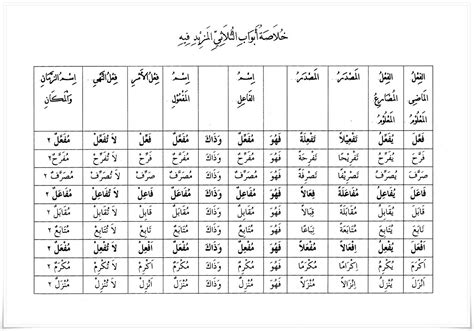 خُلَاصَةُ أَبْوَابِ الثُّلَاثِيِّ المَزِيْدِ فِيْهِ
الفِعْلُ الفِعْلُ المَصْدَرُ المَصْدَرُ اِسْمُ اِسْمُ فِعْلُ الأَمْرِ فِعْلُ النَّهْيِ اِسْمُ الزَّمَانِ
المَاضِي المُضَارِعُ الفَاعِلِ المَفْعُوْلِ وَالْمَكَانِ
المَعْلُوْمُ المَعْلُوْمُ
فَعَّلَ يُفَعِّلُ تَفْعِيْلًا تَفْعِلَةً فَهُوَ مُفَعِّلٌ وَذَاكَ مُفَعَّلٌ فَعِّلْ لَا تُفَعِّلْ مُفَعَّلٌ ٢
فَرَّحَ يُفَرِّحُ تَفْرِيْحًا تَفْرِحَةً فَهُوَ مُفَرِّحٌ وَذَاكَ مُفَرَّحٌ فَرِّحْ لَا تُفَرِّحْ مُفَرَّحٌ ٢
صَرَّفَ يُصَرِّفُ تَصْرِيْفًا تَصْرِفَةً فَهُوَ مُصَرِّفٌ وَذَاكَ مُصَرَّفٌ صَرِّفْ لَا تُصَرِّفْ مُصَرَّفٌ ٢
فَاعَلَ يُفَاعِلُ مُفَاعَلَةً فِعَالًا فَهُوَ مُفَاعِلٌ وَذَاكَ مُفَاعَلٌ فَاعِلْ لَا تُفَاعِلْ مُفَاعَلٌ ٢
قَابَلَ يُقَابِلُ مُقَابَلَةً قِبَالًا فَهُوَ مُقَابِلٌ وَذَاكَ مُقَابَلٌ قَابِلْ لَا تُقَابِلْ مُقَابَلٌ ٢
تَابَعَ يُتَابِعُ مُتَابَعَةً تِبَاعًا فَهُوَ مُتَابِعٌ وَذَاكَ مُتَابَعٌ تَابِعْ لَا تُتَابِعْ مُتَابَعٌ ٢
أَفْعَلَ يُفْعِلُ إِفْعَالًا فَهُوَ مُفْعِلٌ وَذَاكَ مُفْعَلٌ أَفْعِلْ لَا تُفْعِلْ مُفْعَلٌ ٢
أَكْرَمَ يُكْرِمُ إِكْرَامًا فَهُوَ مُكْرِمٌ وَذَاكَ مُكْرَمٌ أَكْرِمْ لَا تُكْرِمْ مُكْرَمٌ ٢
أَنْزَلَ يُنْزِلُ إِنْزَالًا فَهُوَ مُنْزِلٌ وَذَاكَ مُنْزَلٌ أَنْزِلْ لَا تُنْزِلْ مُنْزَلٌ ٢